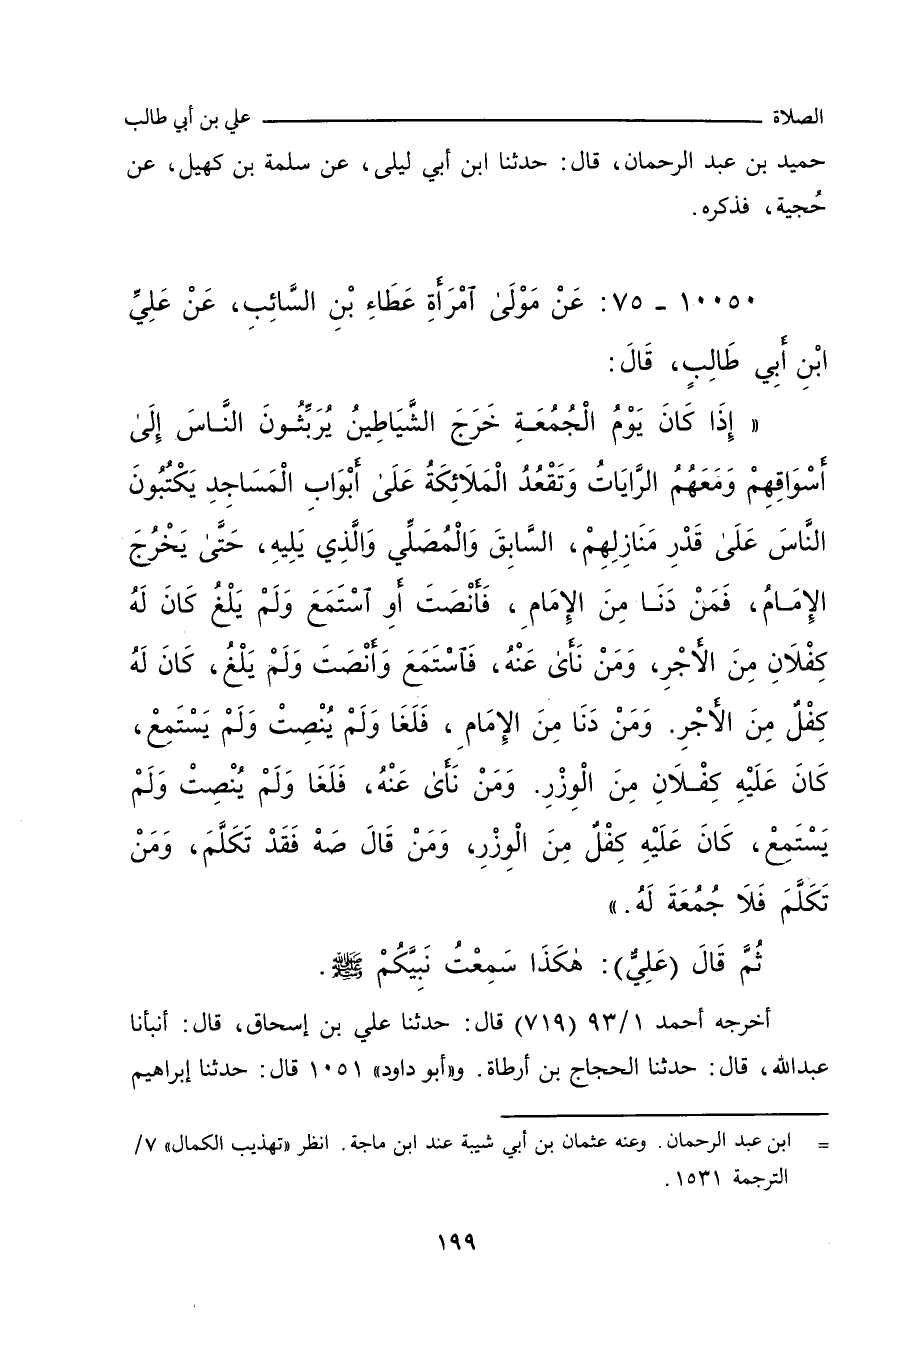 الصلاة ــــــــــــــــــــــــــــــــ علي بن أبي طالب
حميد بن عبد الرحمان، قال: حدثنا ابن أبي ليلى، عن سلمة بن كهيل، عن
حُجية، فذكره.
١٠٠٥٠ - ٧٥: عَنْ مَوْلَىٰ ٱمْرَأَةِ عَطَاءِ بْنِ السَّائِبِ، عَنْ عَلِيِّ
ابْنِ أَبِي طَالِبٍ، قَالَ:
« إِذَا كَانَ يَوْمُ الْجُمُعَةِ خَرَجَ الشَّيَاطِينُ يُرَبِّثُونَ النَّاسَ إِلَىٰ
أَسْوَاقِهِمْ وَمَعَهُمُ الرَّايَاتُ وَتَقْعُدُ الْمَلَائِكَةُ عَلَىٰ أَبْوَابِ الْمَسَاجِدِ يَكْتُبُونَ
النَّاسَ عَلَىٰ قَدْرِ مَنَازِلِهِمْ، السَّابِقَ وَالْمُصَلِّي وَالَّذِي يَلِيهِ، حَتَّىٰ يَخْرُجَ
الإِمَامُ، فَمَنْ دَنَا مِنَ الإِمَامِ، فَأَنْصَتَ أَوِ ٱسْتَمَعَ وَلَمْ يَلْغُ كَانَ لَهُ
كِفْلَانِ مِنَ الأَجْرِ، وَمَنْ نَأَىٰ عَنْهُ، فَٱسْتَمَعَ وَأَنْصَتَ وَلَمْ يَلْغُ، كَانَ لَهُ
كِفْلٌ مِنَ الأَجْرِ. وَمَنْ دَنَا مِنَ الإِمَامِ، فَلَغَا وَلَمْ يُنْصِتْ وَلَمْ يَسْتَمِعْ،
كَانَ عَلَيْهِ كِفْلَانِ مِنَ الْوِزْرِ. وَمَنْ نَأَىٰ عَنْهُ، فَلَغَا وَلَمْ يُنْصِتْ وَلَمْ
يَسْتَمِعْ، كَانَ عَلَيْهِ كِفْلٌ مِنَ الْوِزْرِ، وَمَنْ قَالَ صَهْ فَقَدْ تَكَلَّمَ، وَمَنْ
تَكَلَّمَ فَلَا جُمُعَةَ لَهُ.»
ثُمَّ قَالَ (عَلِيٌّ): هٰكَذَا سَمِعْتُ نَبِيَّكُمْ ﷺ.
أخرجه أحمد ٩٣/١ (٧١٩) قال: حدثنا علي بن إسحاق، قال: أنبأنا
عبدالله، قال: حدثنا الحجاج بن أرطاة. و«أبو داود» ١٠٥١ قال: حدثنا إبراهيم
= ابن عبد الرحمان. وعنه عثمان بن أبي شيبة عند ابن ماجة. انظر «تهذيب الكمال» ٧/
الترجمة ١٥٣١.
١٩٩